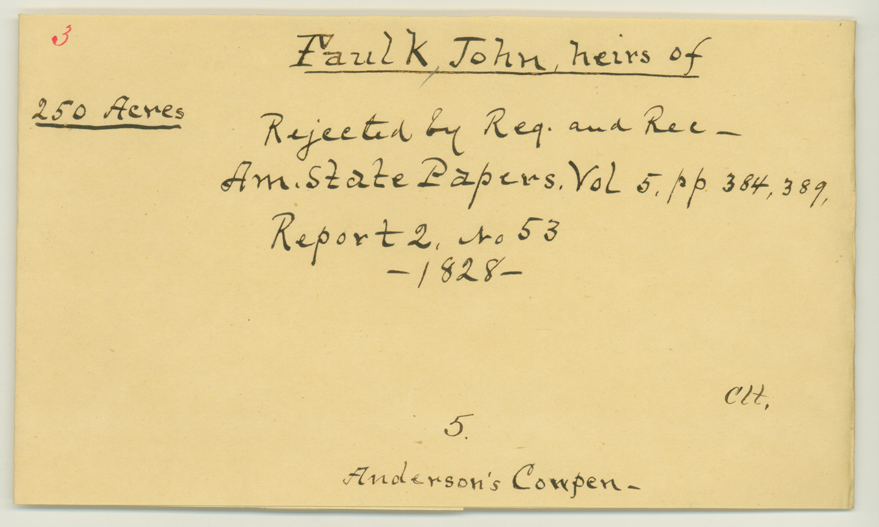 3
Faulk, John, heirs of
250 Acres
Rejected by Reg. and Rec —
Am. State Papers. Vol 5, pp 384, 389,
Report 2, No 53
— 1828 —
Clt.
5.
Anderson's Cowpen —